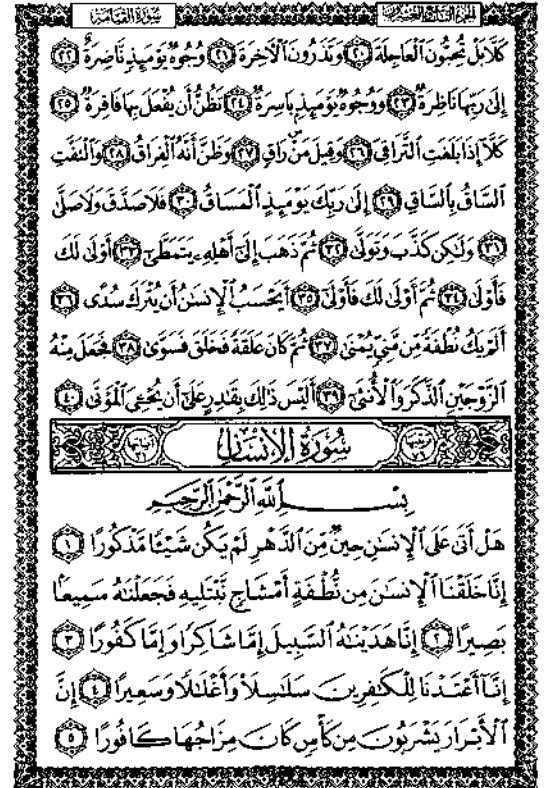 الجزء التاسع والعشرون سورة القيامة
كَلَّا بَلْ تُحِبُّونَ ٱلْعَاجِلَةَ ﴿٢٠﴾ وَتَذَرُونَ ٱلْءَاخِرَةَ ﴿٢١﴾ وُجُوهٌ يَوْمَئِذٍ نَّاضِرَةٌ ﴿٢٢﴾
إِلَىٰ رَبِّهَا نَاظِرَةٌ ﴿٢٣﴾ وَوُجُوهٌ يَوْمَئِذٍۭ بَاسِرَةٌ ﴿٢٤﴾ تَظُنُّ أَن يُفْعَلَ بِهَا فَاقِرَةٌ ﴿٢٥﴾
كَلَّآ إِذَا بَلَغَتِ ٱلتَّرَاقِيَ ﴿٢٦﴾ وَقِيلَ مَنْ ۜ رَاقٍ ﴿٢٧﴾ وَظَنَّ أَنَّهُ ٱلْفِرَاقُ ﴿٢٨﴾ وَٱلْتَفَّتِ
ٱلسَّاقُ بِٱلسَّاقِ ﴿٢٩﴾ إِلَىٰ رَبِّكَ يَوْمَئِذٍ ٱلْمَسَاقُ ﴿٣٠﴾ فَلَا صَدَّقَ وَلَا صَلَّىٰ
﴿٣١﴾ وَلَٰكِن كَذَّبَ وَتَوَلَّىٰ ﴿٣٢﴾ ثُمَّ ذَهَبَ إِلَىٰٓ أَهْلِهِۦ يَتَمَطَّىٰٓ ﴿٣٣﴾ أَوْلَىٰ لَكَ
فَأَوْلَىٰ ﴿٣٤﴾ ثُمَّ أَوْلَىٰ لَكَ فَأَوْلَىٰٓ ﴿٣٥﴾ أَيَحْسَبُ ٱلْإِنسَٰنُ أَن يُتْرَكَ سُدًى ﴿٣٦﴾
أَلَمْ يَكُ نُطْفَةً مِّن مَّنِىٍّ يُمْنَىٰ ﴿٣٧﴾ ثُمَّ كَانَ عَلَقَةً فَخَلَقَ فَسَوَّىٰ ﴿٣٨﴾ فَجَعَلَ مِنْهُ
ٱلزَّوْجَيْنِ ٱلذَّكَرَ وَٱلْأُنثَىٰٓ ﴿٣٩﴾ أَلَيْسَ ذَٰلِكَ بِقَٰدِرٍ عَلَىٰٓ أَن يُحْـِۧىَ ٱلْمَوْتَىٰ ﴿٤٠﴾
سُورَةُ الإِنسَان
بِسْمِ ٱللَّهِ ٱلرَّحْمَٰنِ ٱلرَّحِيمِ
هَلْ أَتَىٰ عَلَى ٱلْإِنسَٰنِ حِينٌ مِّنَ ٱلدَّهْرِ لَمْ يَكُن شَيْـًٔا مَّذْكُورًا ﴿١﴾
إِنَّا خَلَقْنَا ٱلْإِنسَٰنَ مِن نُّطْفَةٍ أَمْشَاجٍ نَّبْتَلِيهِ فَجَعَلْنَٰهُ سَمِيعًۢا
بَصِيرًا ﴿٢﴾ إِنَّا هَدَيْنَٰهُ ٱلسَّبِيلَ إِمَّا شَاكِرًا وَإِمَّا كَفُورًا ﴿٣﴾
إِنَّآ أَعْتَدْنَا لِلْكَٰفِرِينَ سَلَٰسِلَا۟ وَأَغْلَٰلًا وَسَعِيرًا ﴿٤﴾ إِنَّ
ٱلْأَبْرَارَ يَشْرَبُونَ مِن كَأْسٍ كَانَ مِزَاجُهَا كَافُورًا ﴿٥﴾